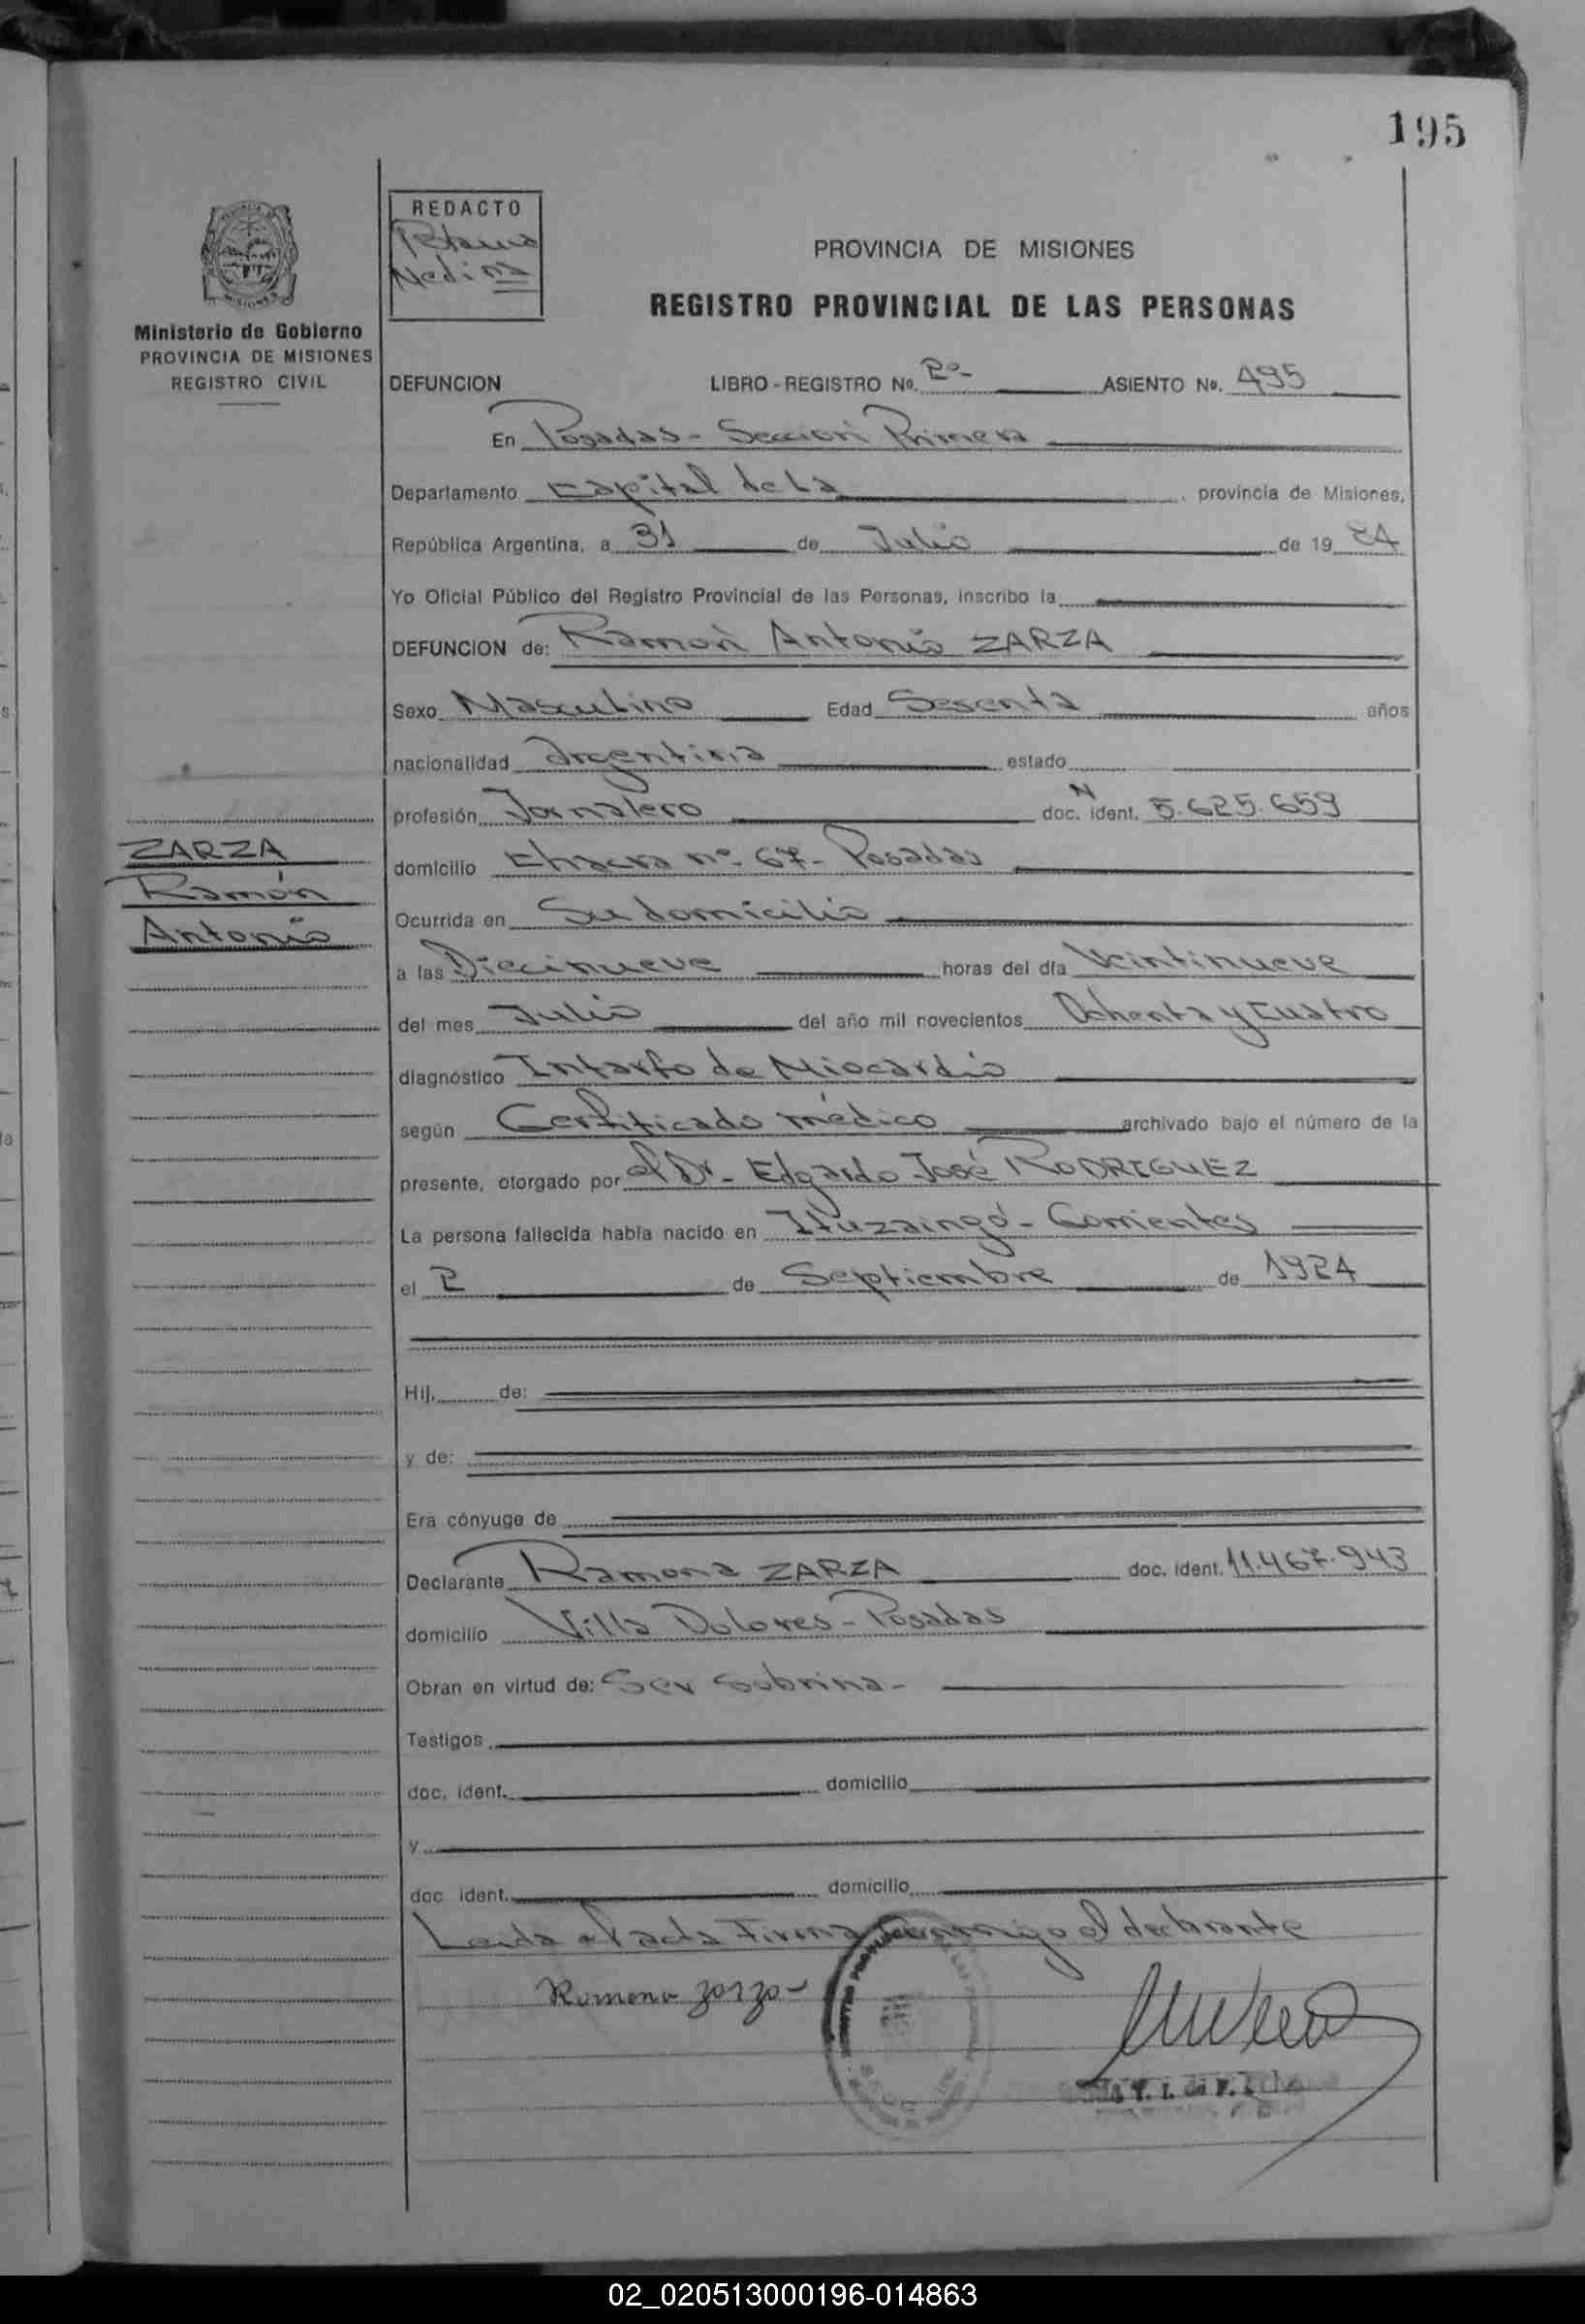 195
REDACTO
Medina
PROVINCIA DE MISIONES
REGISTRO PROVINCIAL DE LAS PERSONAS
Ministerio de Gobierno
PROVINCIA DE MISIONES
REGISTRO CIVIL
DEFUNCION LIBRO-REGISTRO No. 2º- ASIENTO No. 495
En Posadas - Sección Primera
Departamento Capital de la , provincia de Misiones,
República Argentina, a 31 de Julio de 19 84
Yo Oficial Público del Registro Provincial de las Personas, inscribo la
DEFUNCION de: Ramón Antonio ZARZA
Sexo Masculino Edad Sesenta años
nacionalidad Argentina estado
profesión Jornalero doc. N ident. 5.625.659
ZARZA
Ramón
Antonio
domicilio Chacra nº 67- Posadas
Ocurrida en Su domicilio
a las Diecinueve horas del día Veintinueve
del mes Julio del año mil novecientos Ochenta y Cuatro
diagnóstico Infarto de Miocardio
según Certificado médico archivado bajo el número de la
presente, otorgado por el Dr. Edgardo José RODRIGUEZ
La persona fallecida había nacido en Ituzaingó - Corrientes
el 2 de Septiembre de 1924
Hij. de:
y de:
Era cónyuge de
Declarante Ramona ZARZA doc. ident. 11.467.943
domicilio Villa Dolores - Posadas
Obran en virtud de: Ser Sobrina-
Testigos
doc. ident. domicilio
y
doc ident. domicilio
Leida el acta Firma conmigo el declarante
Ramona Zarza
02_020513000196-014863